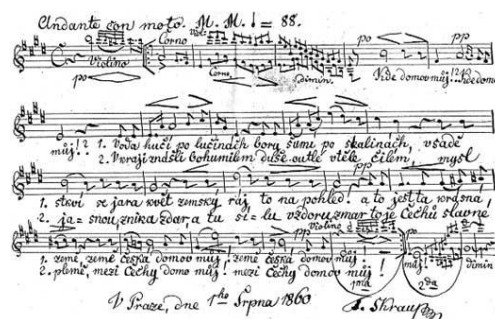 Andante con moto. M. M. ♩ = 88.
Corno Viole
Violino Corno dimin. Kde domov můj! Kde domo
po po pp
můj!? 1. Voda hučí po lučinách bory šumí po skalinách, v sadě
2. V kraji znášli bohumilém duše outlé v těle čilém, mysl
1. stkví se jara květ zemský ráj to na pohled. a to jest ta krásná,
2. ja = snou, znik a zdar, a tu sí = lu vzdoru zmar to je Čechů slavné
pp Violino pp
1. země, země česká domov můj, země česká domov můj!
2. plémě, mezi Čechy domo můj! mezi Čechy domov můj!
1ma 2da dimin
V Praze, dne 1ho Srpna 1860 F. Škraup